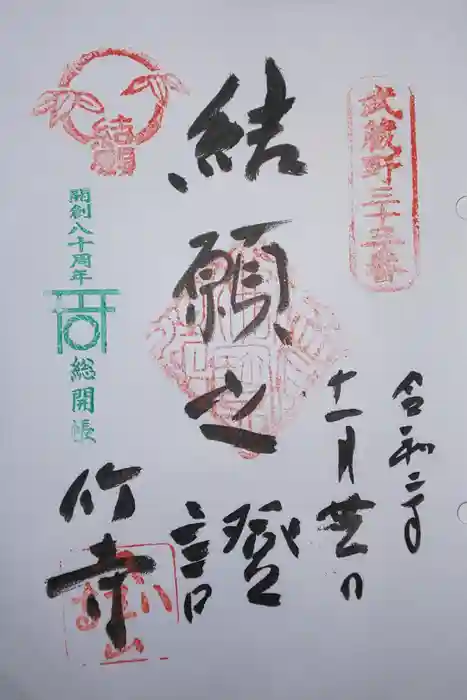 武蔵野三十三番
令和二年
十一月
結願之證
結願
開創八十周年
総開帳
竹寺